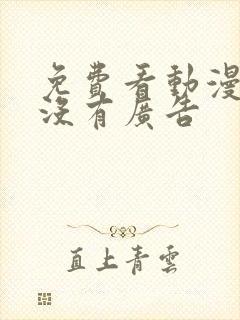 免費看動漫
沒有廣告
直上青雲